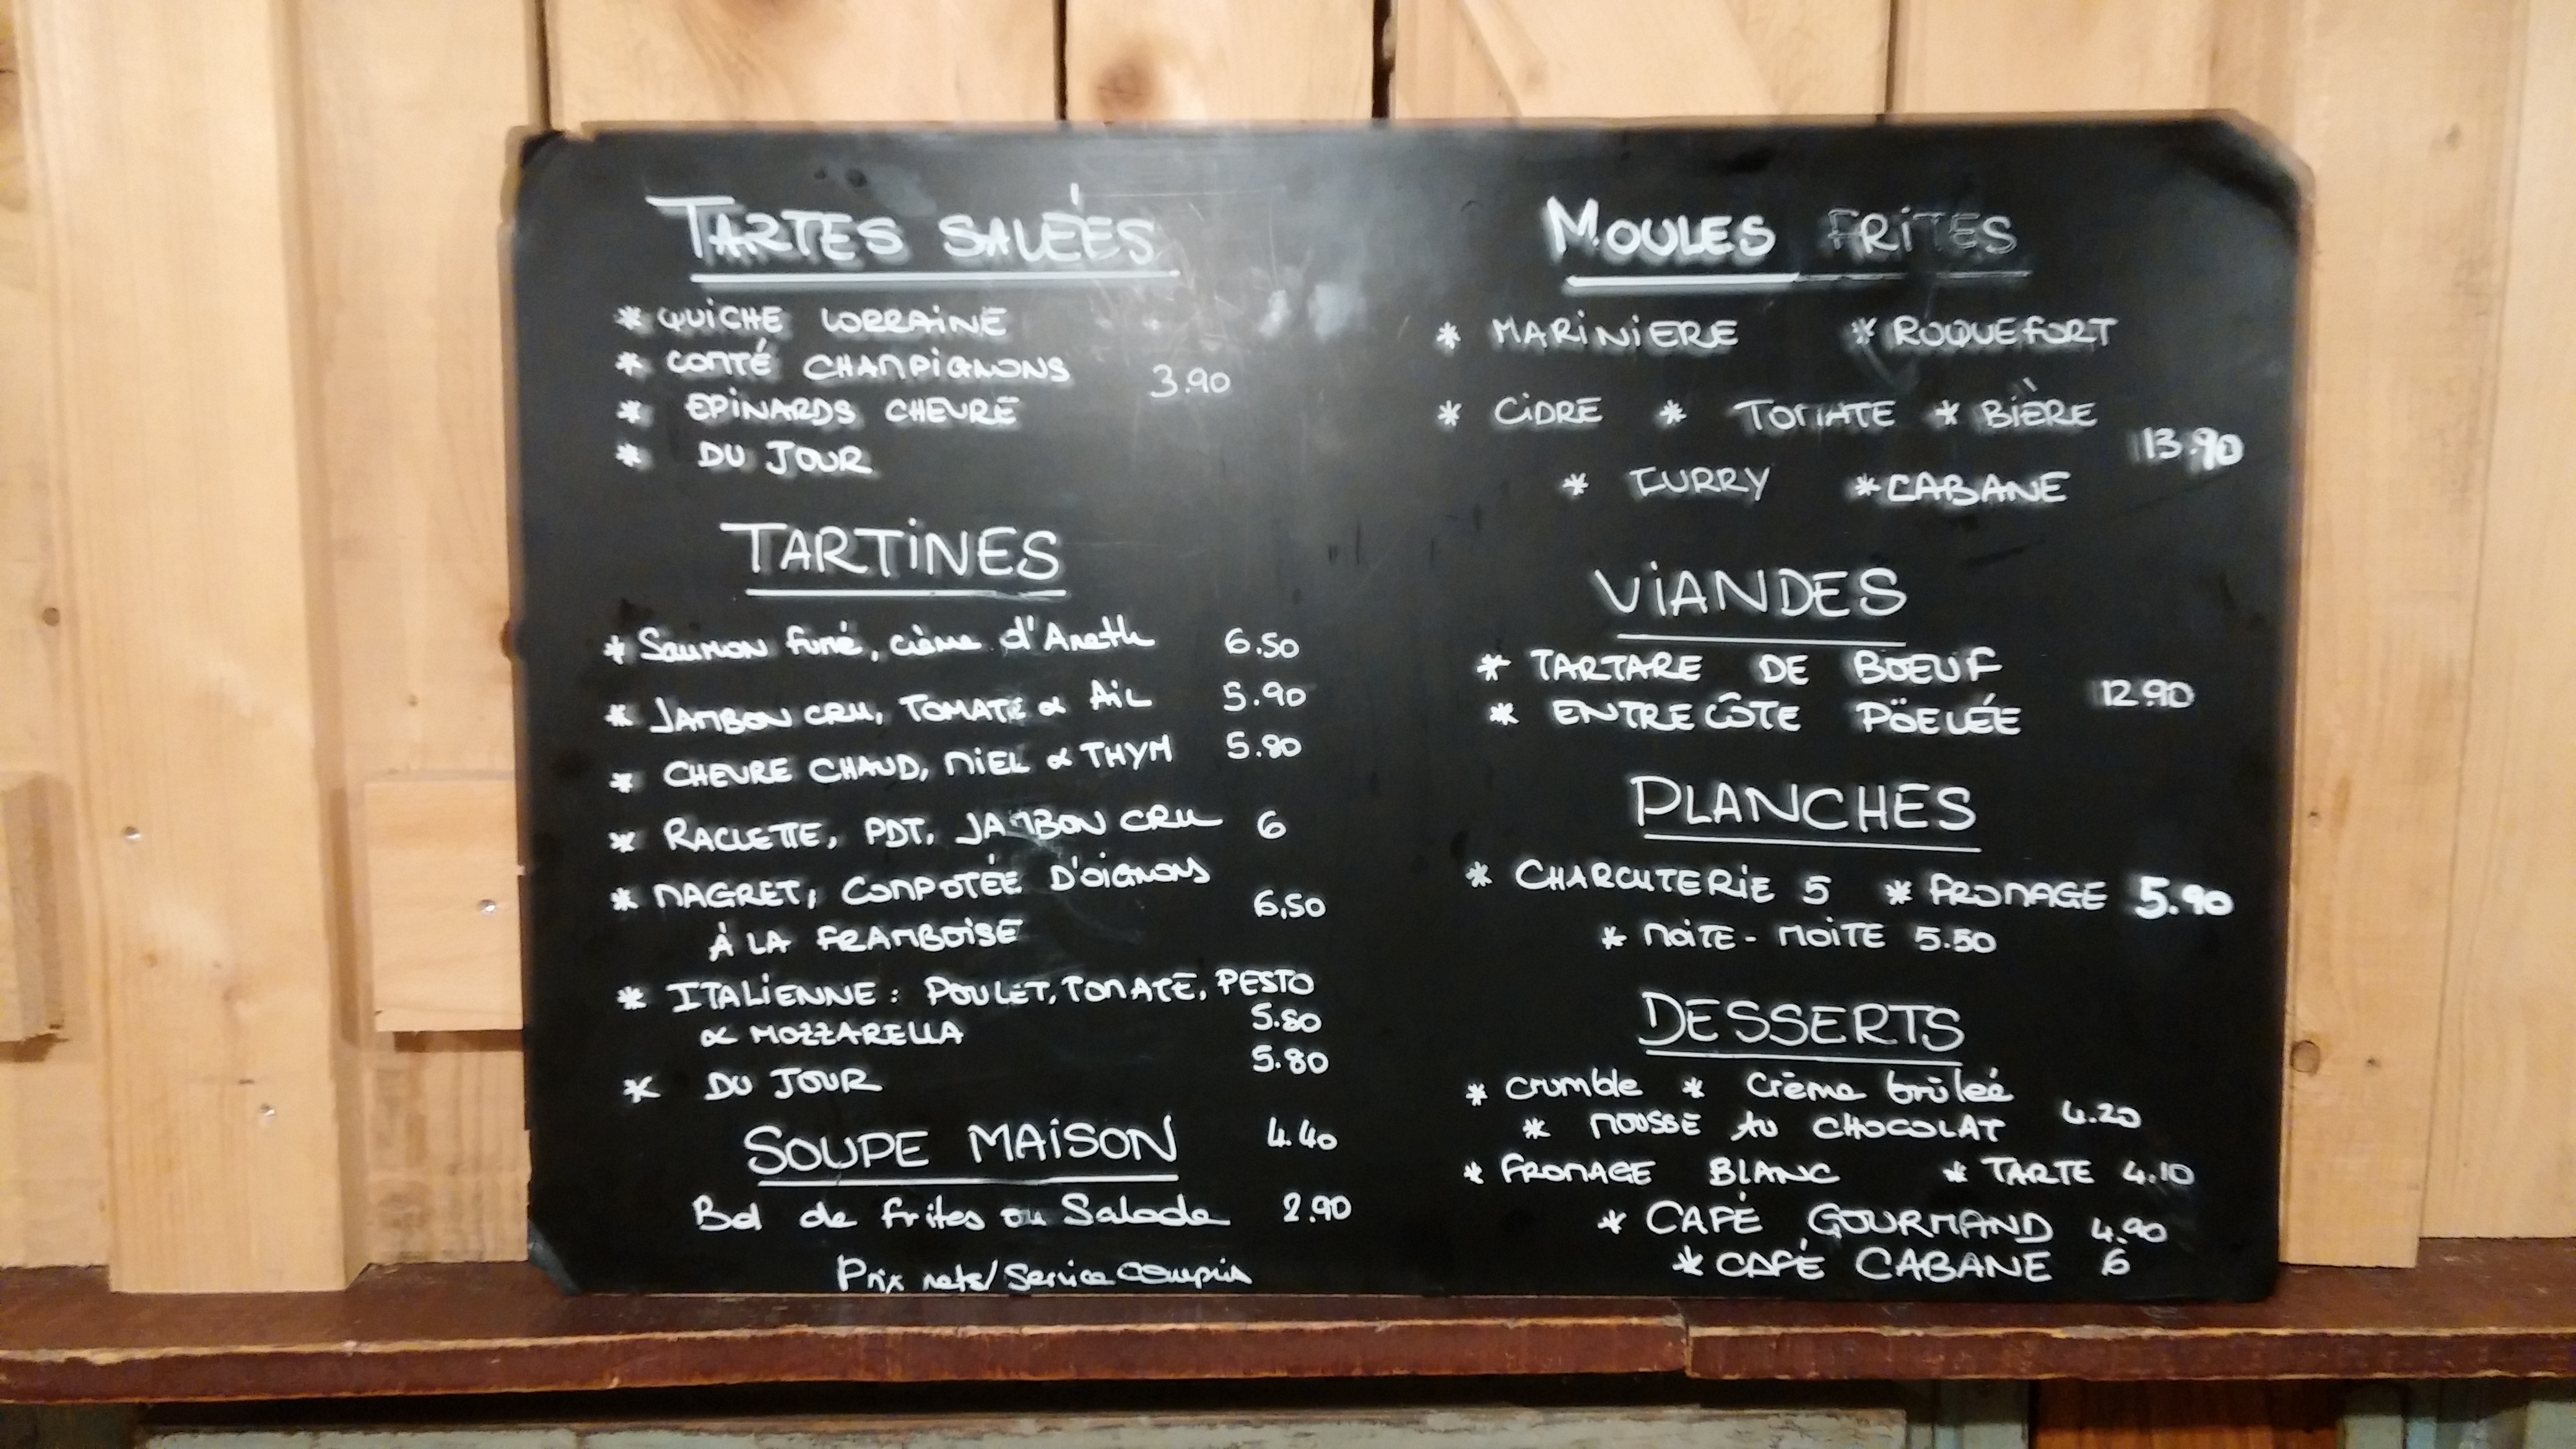 TARTES SALÉES
* QUICHE LORRAINE
* COMTÉ CHAMPIGNONS 3.90
* EPINARDS CHEVRE
* DU JOUR
TARTINES
* Saumon fumé, crème d'Aneth 6.50
* JAMBON CRU, TOMATE & AIL 5.90
* CHEVRE CHAUD, MIEL & THYM 5.80
* RACLETTE, PDT, JAMBON CRU 6
* MAGRET, COMPOTÉE D'OIGNONS
À LA FRAMBOISE 6,50
* ITALIENNE : POULET, TOMATE, PESTO
& MOZZARELLA 5.80
* DU JOUR 5.80
SOUPE MAISON 4.40
Bol de frites ou Salade 2.90
Prix nets/Service Compris
MOULES FRITES
* MARINIERE * ROQUEFORT
* CIDRE * TOMATE * BIÈRE
13.90
* CURRY * CABANE
VIANDES
* TARTARE DE BOEUF
12.90
* ENTRECÔTE PÖELÉE
PLANCHES
* CHARCUTERIE 5 * FROMAGE 5.90
* MOITE - MOITE 5.50
DESSERTS
* Crumble * Crème brûleé
* MOUSSE AU CHOCOLAT 4.20
* FROMAGE BLANC * TARTE 4.10
* CAFÉ GOURMAND 4.90
* CAFÉ CABANE 6